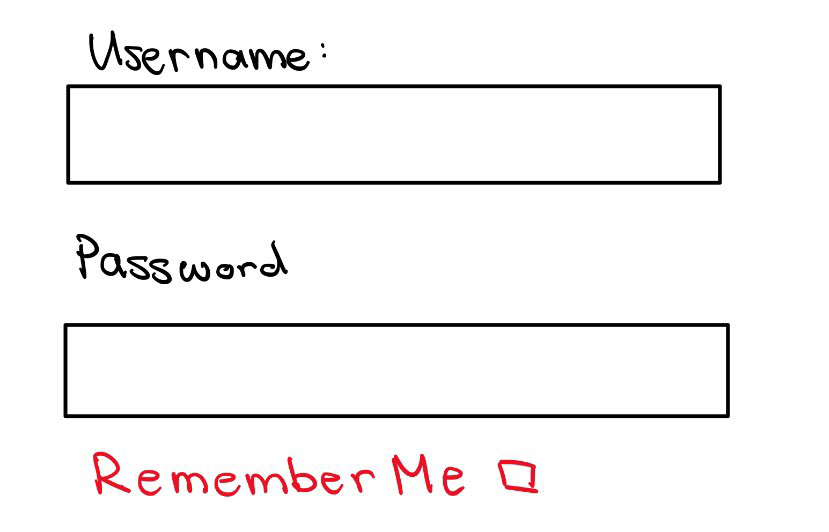 Username:
Password
Remember Me